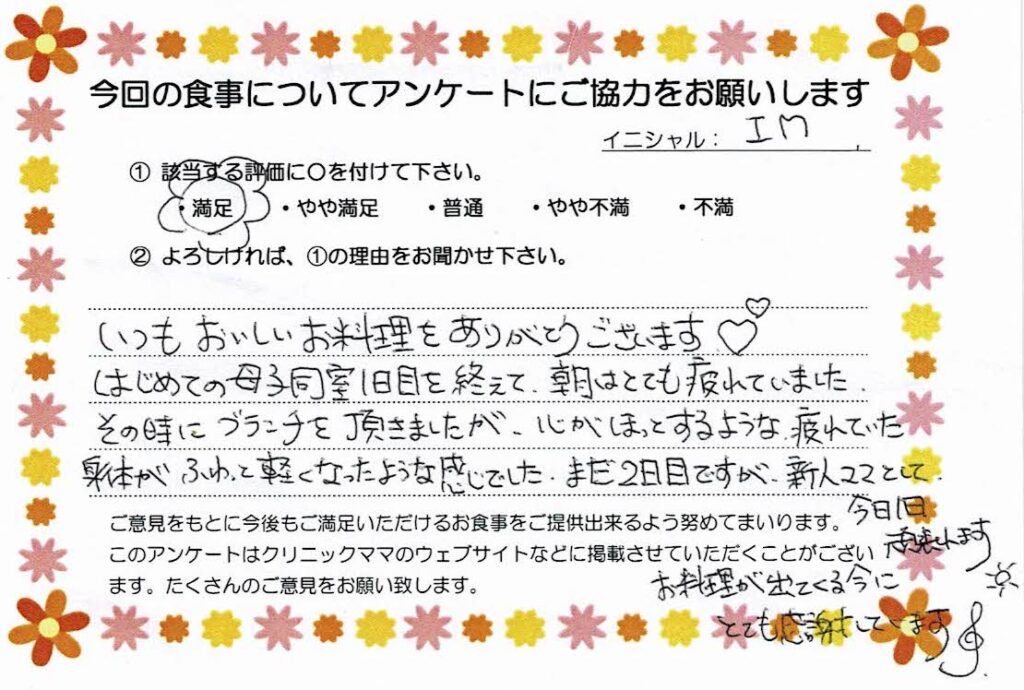 今回の食事についてアンケートにご協力をお願いします
イニシャル： I M
① 該当する評価に〇を付けて下さい。
・満足 ・やや満足 ・普通 ・やや不満 ・不満
② よろしければ、①の理由をお聞かせ下さい。
いつもおいしいお料理をありがとうございます♡♡
はじめての母子同室1日目を終えて、朝はとても疲れていました。
その時にブランチを頂きましたが、心がほっとするような、疲れていた
身体がふわっと軽くなったような感じでした。まだ2日目ですが、新人ママとして、
今日1日
頑張れます
お料理が出てくる今に
とても感謝しています
ご意見をもとに今後もご満足いただけるお食事をご提供出来るよう努めてまいります。
このアンケートはクリニックママのウェブサイトなどに掲載させていただくことがござい
ます。たくさんのご意見をお願い致します。